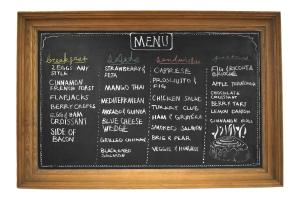 MENU
breakfast
2 EGGS ANY
STYLE
CINNAMON
FRENCH TOAST
FLAPJACKS
BERRY CREPES
EGG & HAM
CROISSANT
SIDE OF
BACON
salads
STRAWBERRY &
FETA
MANGO THAI
MEDITERRANEAN
AVOCADO &
BLUE CHEESE
WEDGE
GRILLED CHICKEN
BLACKENED
SALMON
sandwiches
CAPRESE
PROSCIUTTO &
FIG
CHICKEN SALAD
TURKEY CLUB
HAM & GRUYERE
SMOKED SALMON
BRIE & PEAR
VEGGIE & HUMMUS
FIG & RICOTTA
BRIOCHE
APPLE
CHOCOLATE
CROISSANT
BERRY TART
LEMON DANISH
CINNAMON ROLL